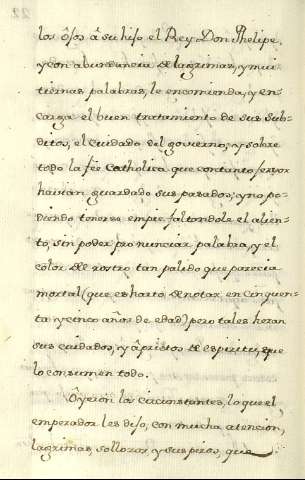 los ôjos â su hijo el Rey Don Phelipe,
y con abundancia de lagrimas, y mui
tiernas palabras, le encomienda, y en-
carga el buen tratamiento de sus sub-
ditos, el cuidado del governo; y sobre
todo la feé Catholica que contanto fervor
havian guardado sus pasados; y no po-
diendo tenerse empie faltandole el alien-
to, sin poder pronunciar palabra, y el
color de rostro tan palido que parecia
mortal (que es harto de notar en cinquen-
ta y cinco años de edad) pero tales heran
sus cuidados, y âprietos de espiritu, que
lo consumen todo.
Ôyeron los circunstantes, lo que el
emperador les dijo, con mucha atencion,
lagrimas, sollozos, y suspiros, que